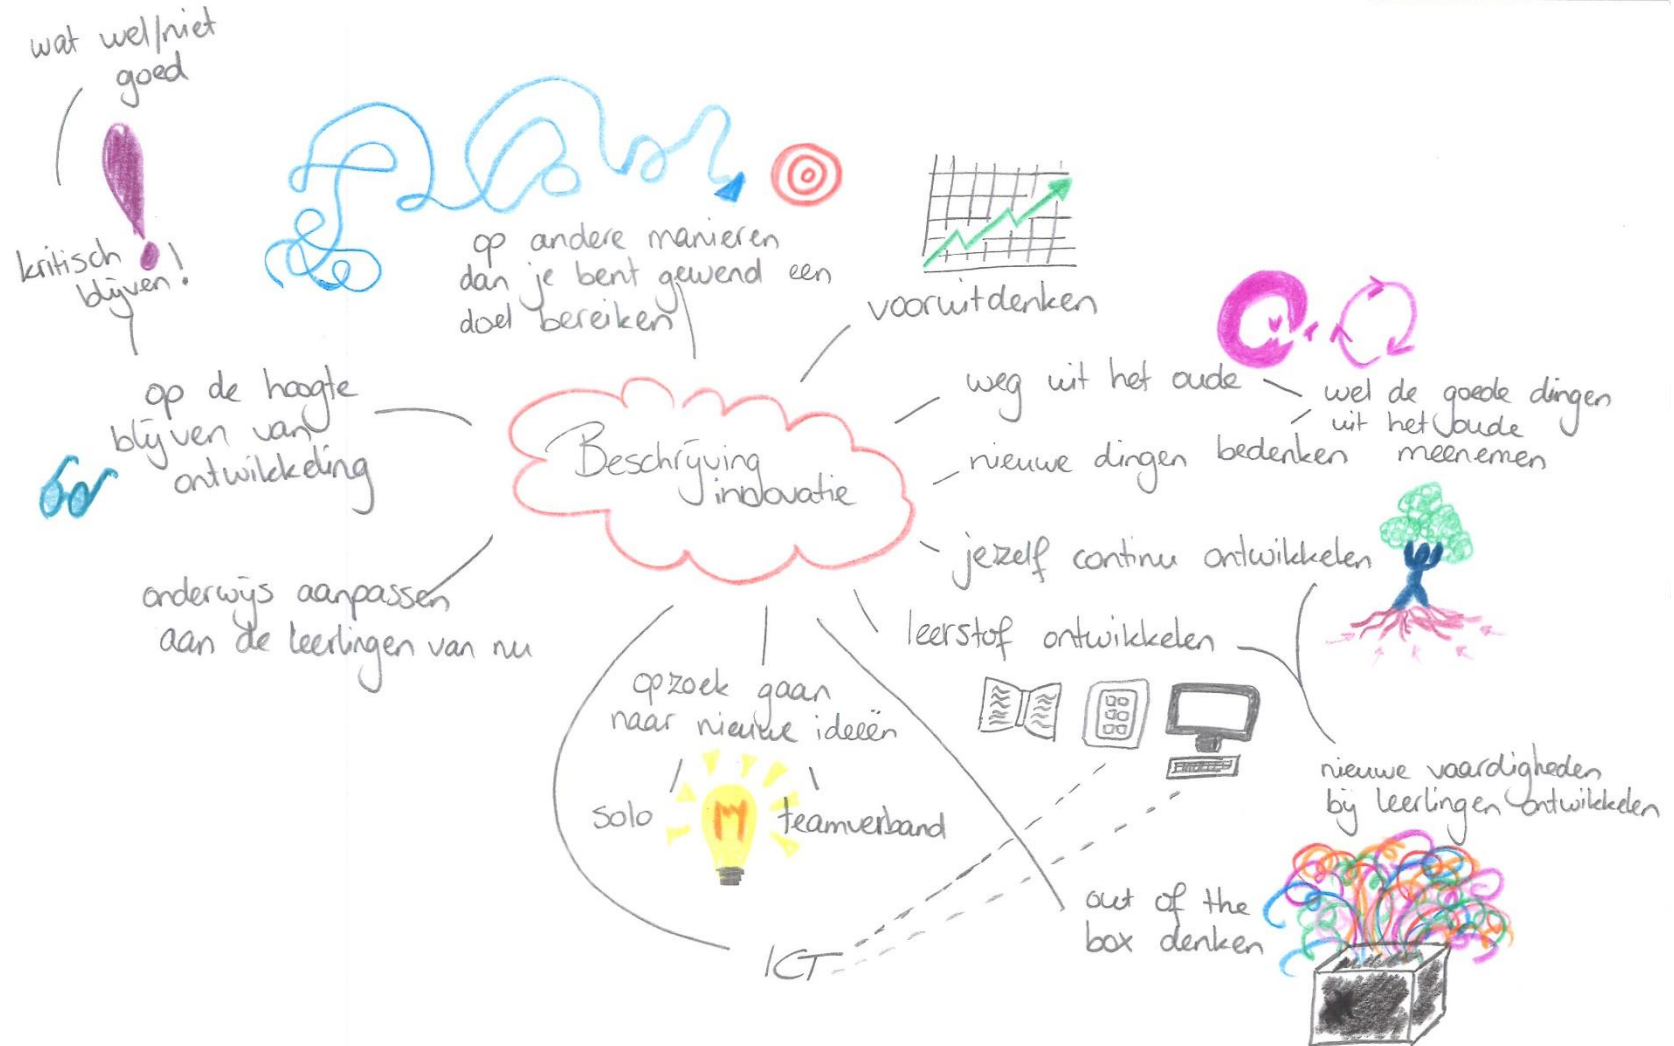 wat wel/niet
goed
kritisch
blijven!
op andere manieren
dan je bent gewend een
doel bereiken
vooruitdenken
op de hoogte
blijven van
ontwikkeling
Beschrijving
innovatie
weg uit het oude
wel de goede dingen
uit het oude
meenemen
nieuwe dingen bedenken
jezelf continu ontwikkelen
onderwijs aanpassen
aan de leerlingen van nu
leerstof ontwikkelen
opzoek gaan
naar nieuwe ideeën
solo
teamverband
nieuwe vaardigheden
bij leerlingen ontwikkelen
out of the
box denken
ICT